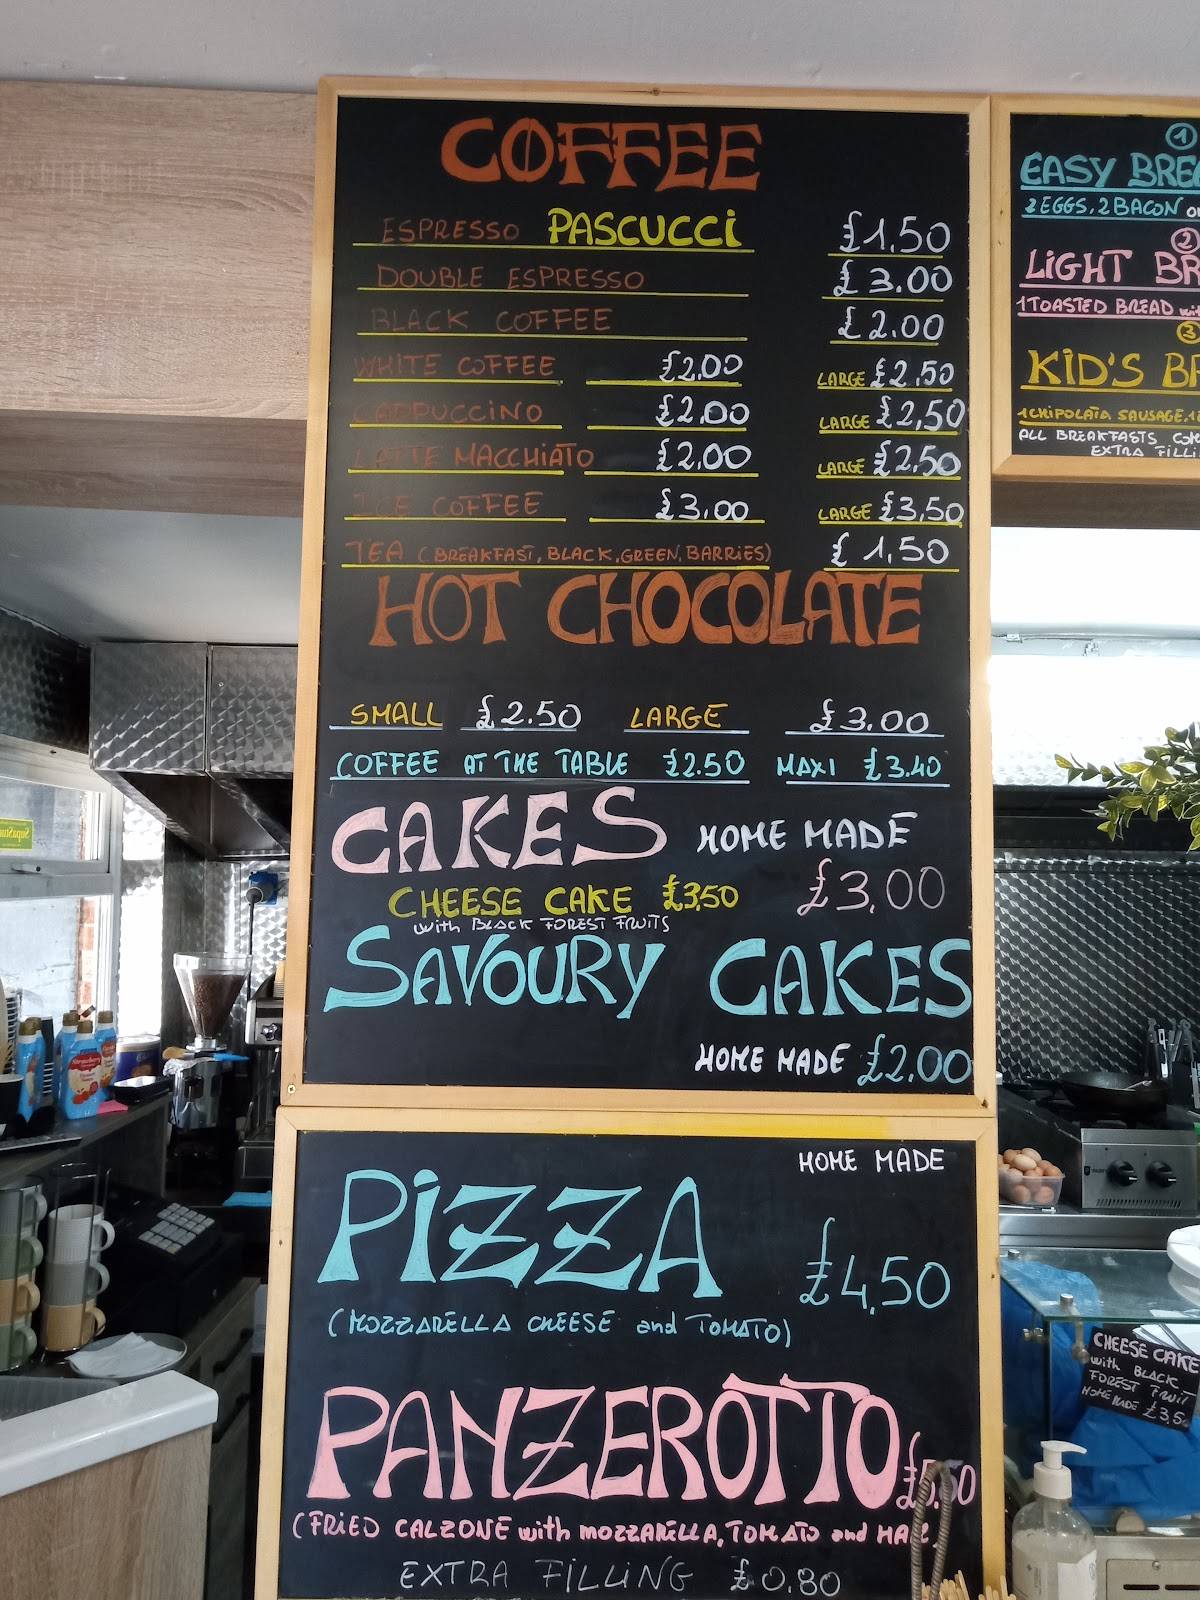 COFFEE
ESPRESSO PASCUCCI £1.50
DOUBLE ESPRESSO £3.00
BLACK COFFEE £2.00
WHITE COFFEE £2.00 LARGE £2.50
CAPPUCCINO £2.00 LARGE £2.50
LATTE MACCHIATO £2.00 LARGE £2.50
ICE COFFEE £3.00 LARGE £3.50
TEA (BREAKFAST, BLACK, GREEN, BARRIES) £1.50
HOT CHOCOLATE
SMALL £2.50 LARGE £3.00
COFFEE AT THE TABLE £2.50 MAXI £3.40
CAKES HOME MADE
CHEESE CAKE £3.50 £3.00
with BLACK FOREST FRUITS
SAVOURY CAKES
HOME MADE £2.00
HOME MADE
PIZZA £4.50
(MOZZARELLA CHEESE and TOMATO)
PANZEROTTO £5.50
(FRIED CALZONE with MOZZARELLA, TOMATO and HAM)
EXTRA FILLING £0.80
1
EASY
2 EGGS, 2 BACON
2
LIGHT
1 TOASTED BREAD
3
KID'S
1 CHIPOLATA SAUSAGE, 1
ALL BREAKFASTS
EXTRA
CHEESE CAKE
with BLACK
FOREST FRUIT
HOME MADE £3.5